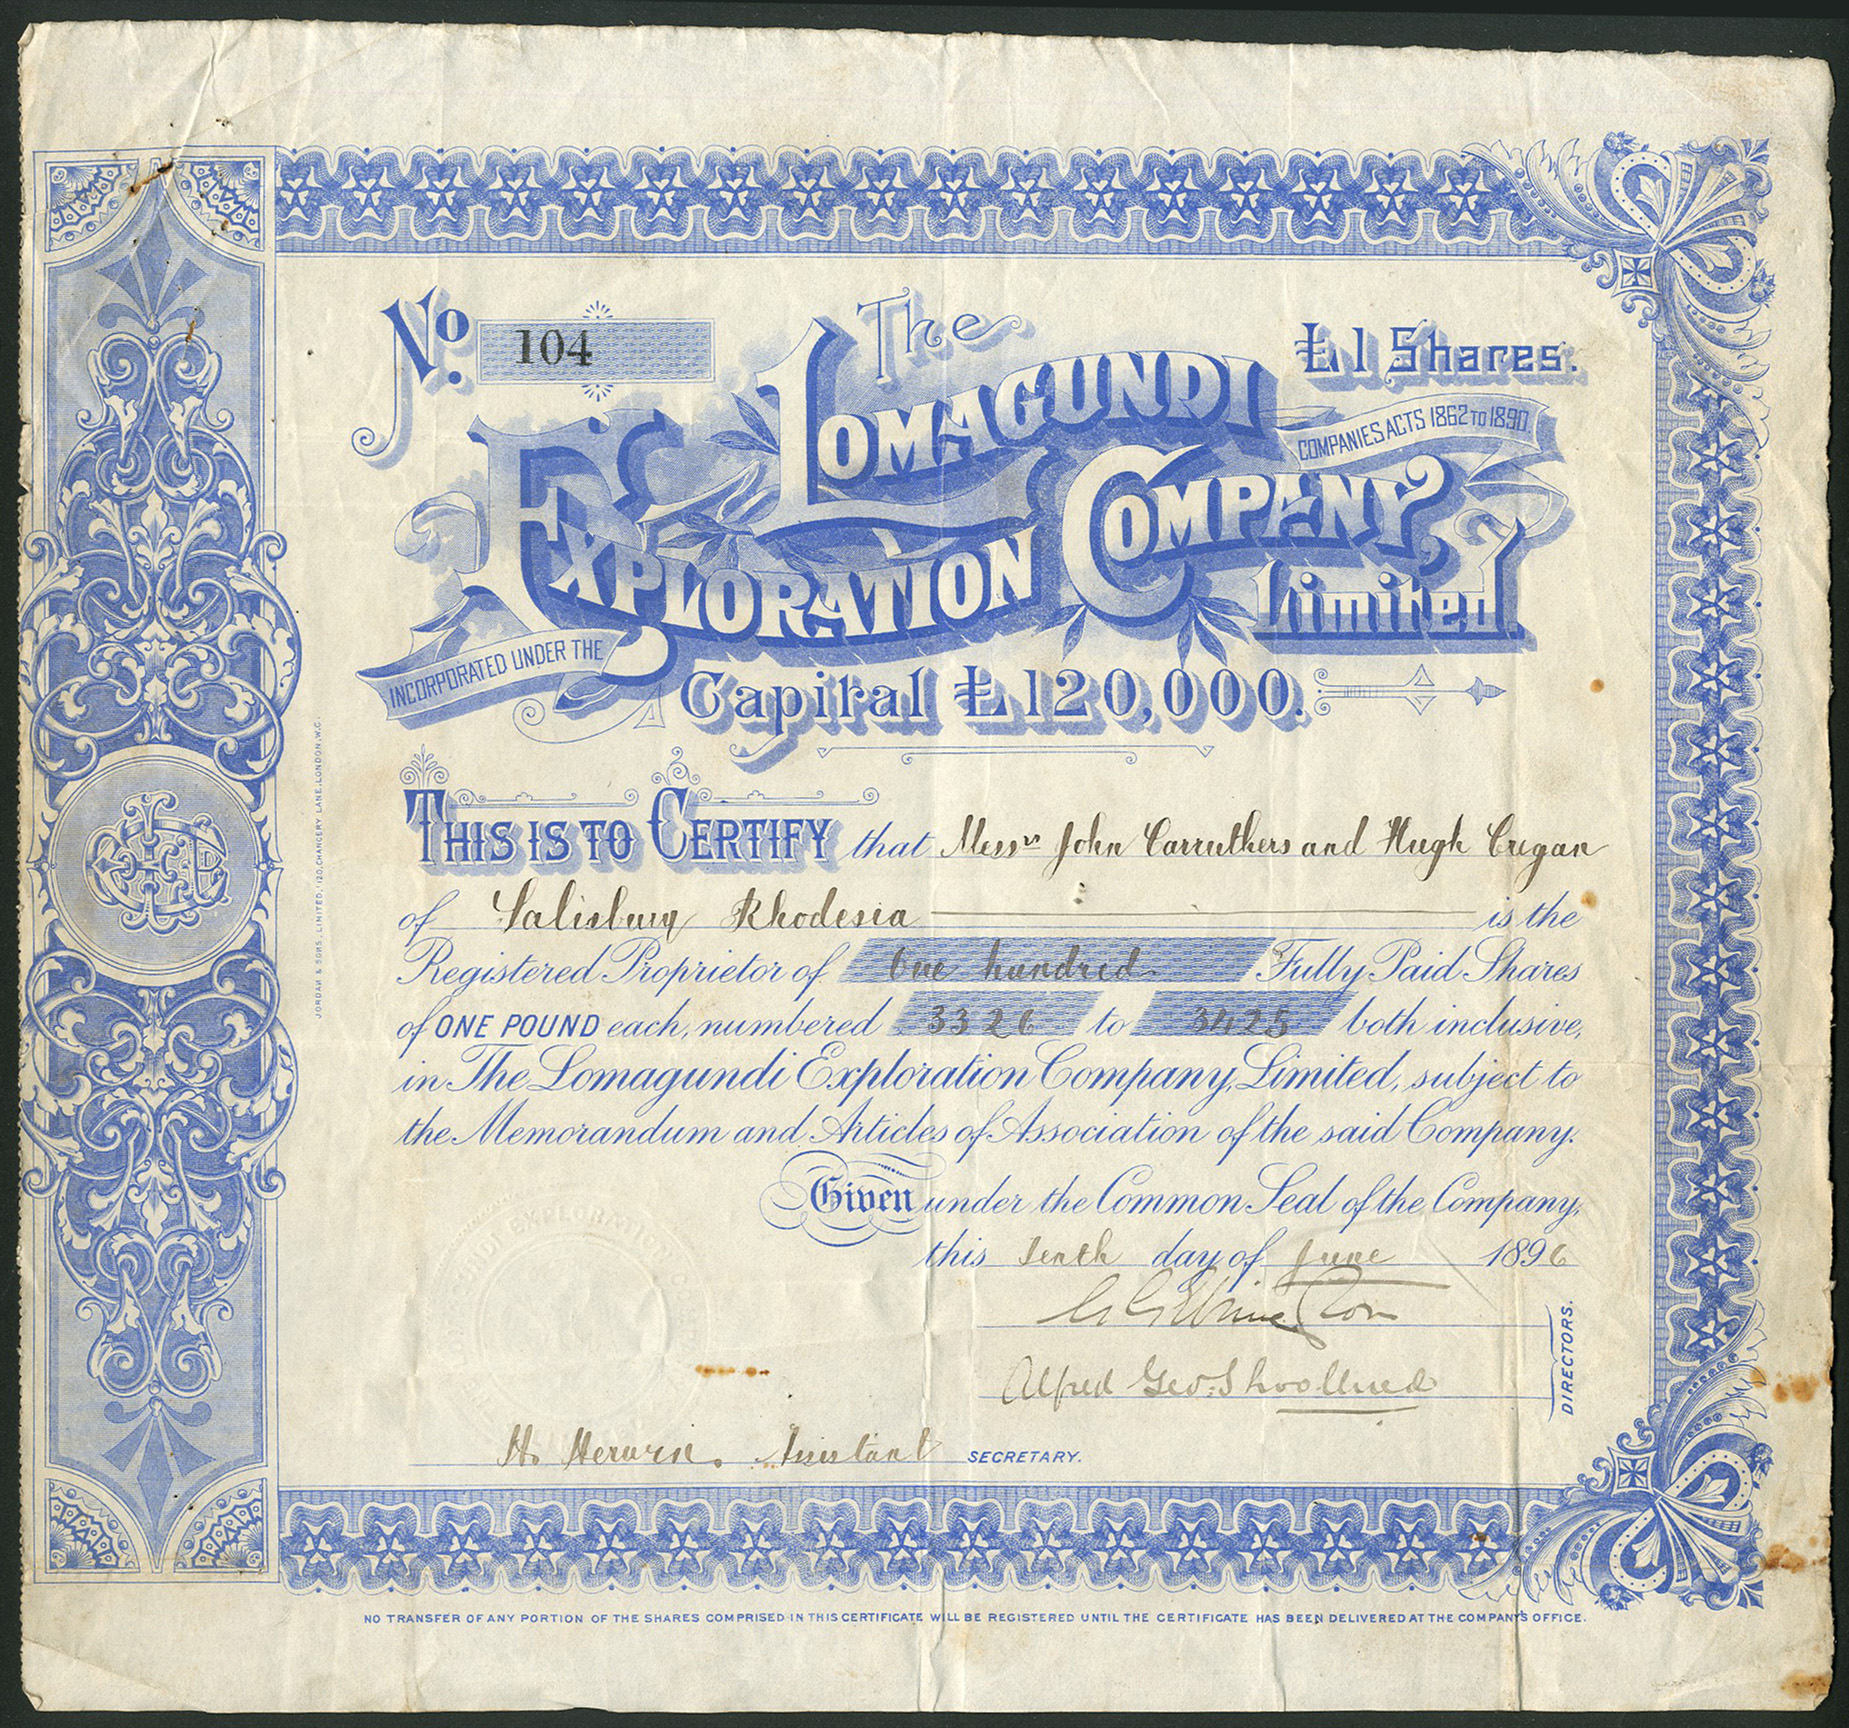 No. 104
The
£1 Shares.
LOMAGUNDI
COMPANIES ACTS 1862 TO 1890.
EXPLORATION COMPANY,
Limited.
INCORPORATED UNDER THE
Capital £120,000.
THIS IS TO CERTIFY that Messrs John Carruthers and Hugh Cregan
of Salisbury Rhodesia is the
Registered Proprietor of One hundred Fully Paid Shares
of ONE POUND each, numbered 3326 to 3425 both inclusive,
in The Lomagundi Exploration Company, Limited, subject to
the Memorandum and Articles of Association of the said Company.
Given under the Common Seal of the Company,
this tenth day of June 1896
Alfred Geo:
DIRECTORS.
H. Assistant SECRETARY.
NO TRANSFER OF ANY PORTION OF THE SHARES COMPRISED IN THIS CERTIFICATE WILL BE REGISTERED UNTIL THE CERTIFICATE HAS BEEN DELIVERED AT THE COMPANY'S OFFICE.
JORDAN & SONS, LIMITED, 120, CHANCERY LANE, LONDON, W.C.
EXPLORATION